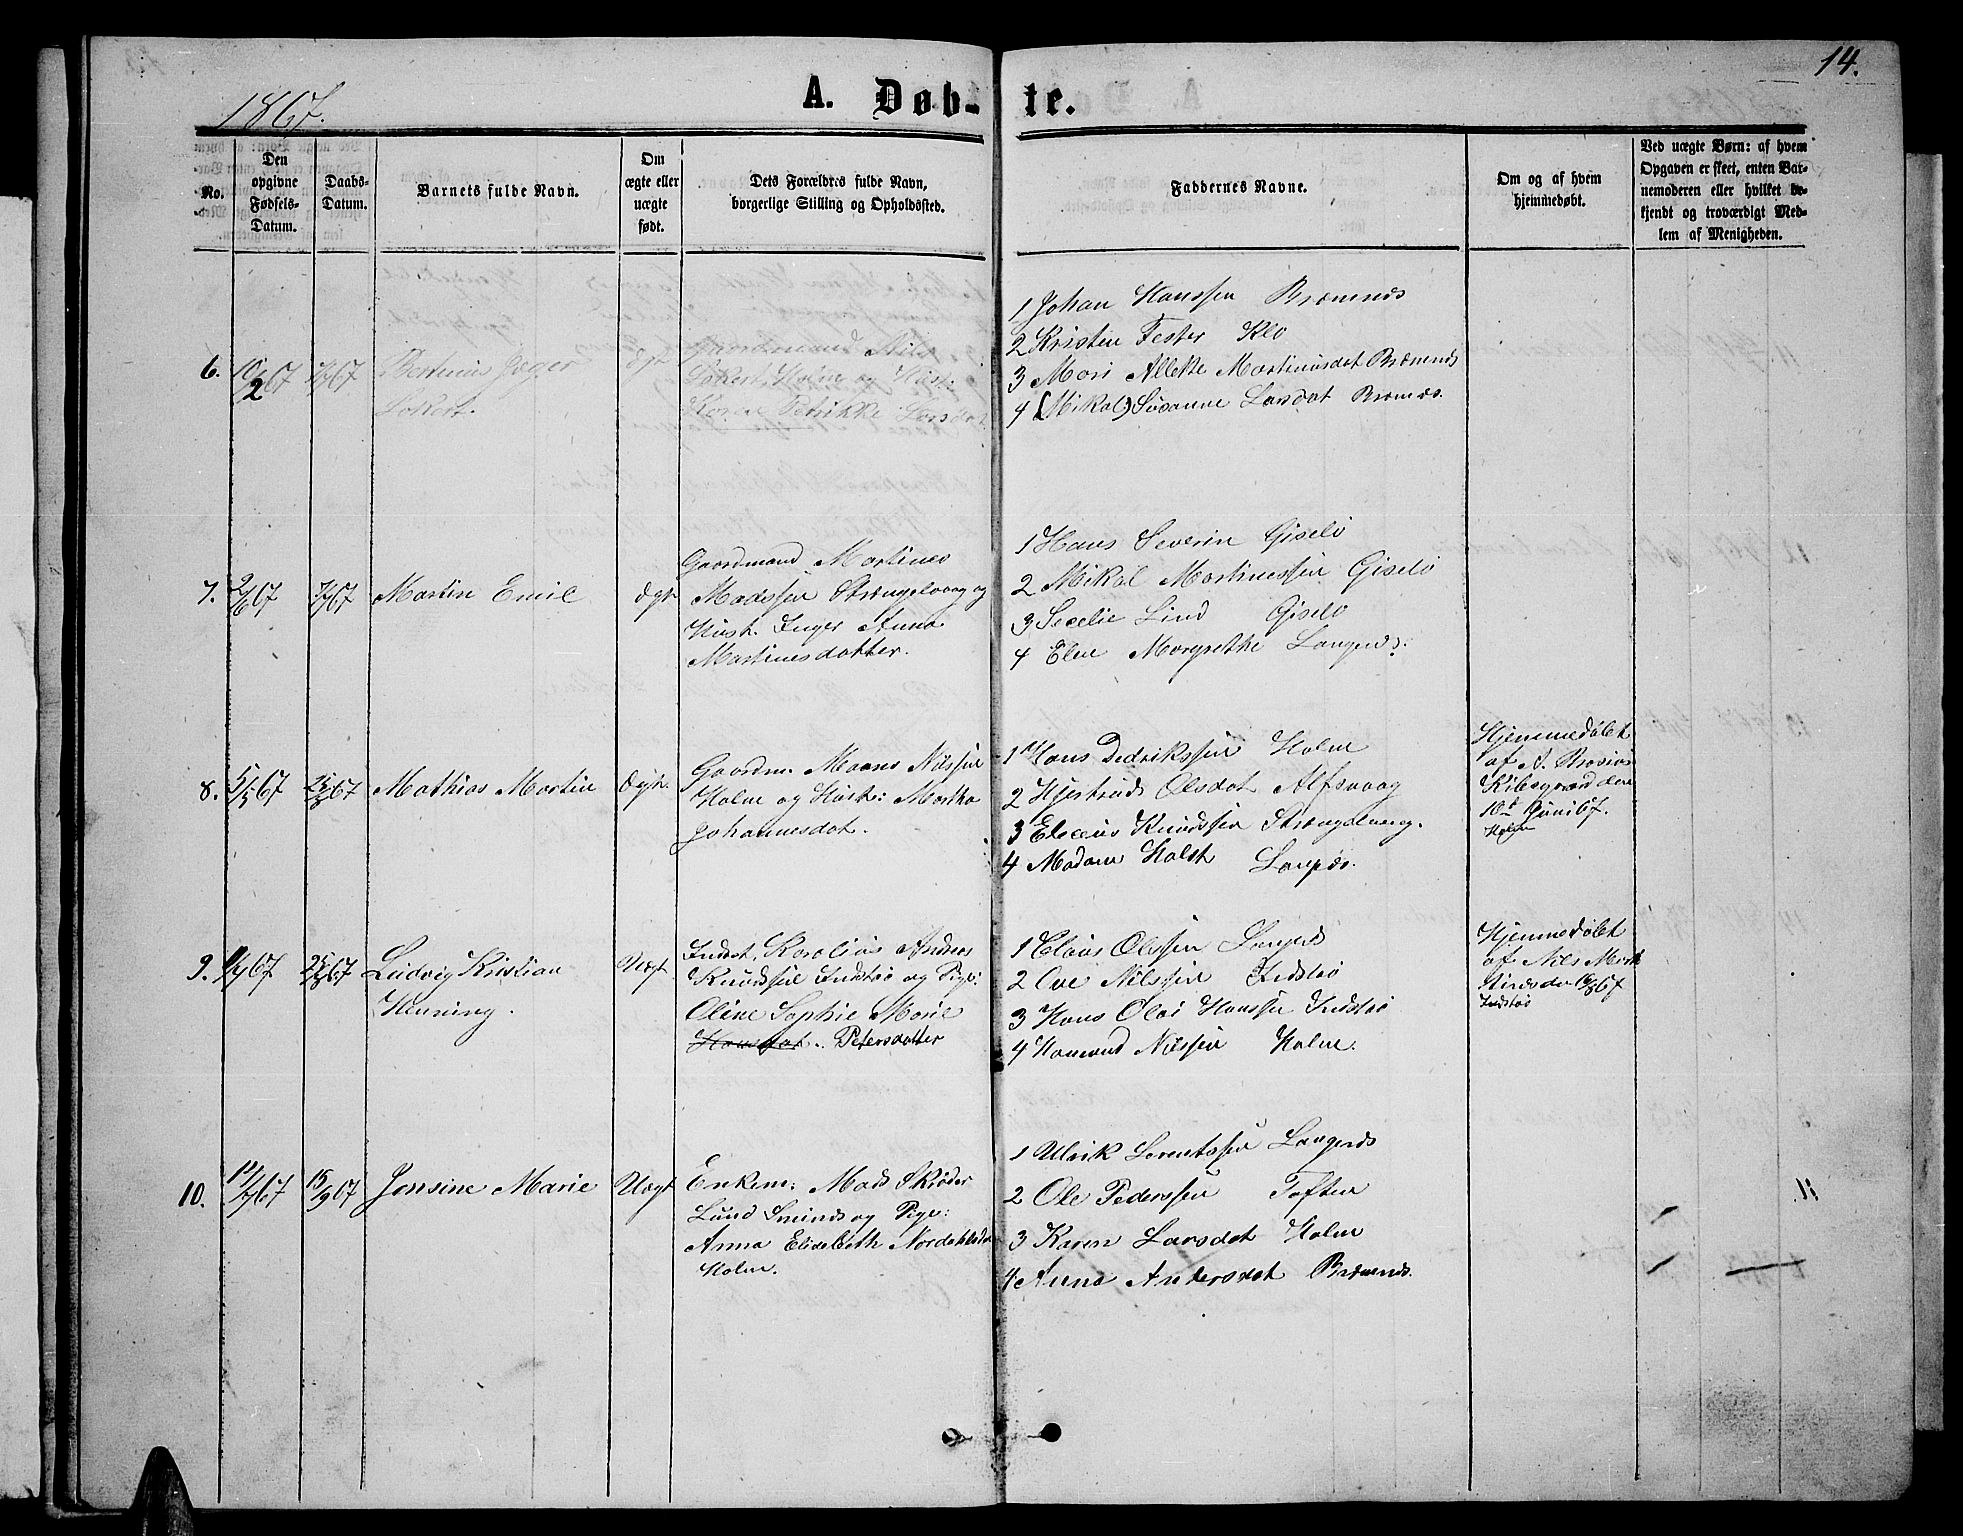 14.
1867.
A. Døb- te.
No.
Den opgivne Fødsels-Datum.
Daabs-Datum.
Barnets fulde Navn.
Om ægte eller uægte født.
Dets Forældres fulde Navn, borgerlige Stilling og Opholdssted.
Faddernes Navne.
Om og af hvem hjemmedøbt.
Ved uægte Børn: af hvem
Opgaven er skeet, enten Bar-
nemoderen eller hvilket be-
kjendt og troværdigt Med-
lem af Menigheden.
6. 10/2 67
Bertinus Jæger
Lokert.
Ægt
Gaardmand Nils
Lokert, Holm og Hust:
Karen Petrikke Larsdat
1 Johan Hanssen Bræmnes
2 Kristen Fester Klo
3 Mari Allette Martinusdat Bræmnes
4 (Mikal) Susanne Larsdat Bræmnes.
7. 2/6 67 7/7 67 Martin Emil Ægt
Gaardmand Martines
Madssen Strængelvaag og
Hust. Inger Anna
Martinesdatter.
1 Hans Severin Gislø
2 Mikal Martinessen Gislø
3 Secelie Lind Gislø
4 Elen Margrethe Langenes.
8. 5/5 67 25/8 67 Mathias Martin Ægt.
Gaardm. Maans Nilssen
Holm og Hust: Martha
Johannesdat.
1 Hans Dedrikssen Holm
2 Hjertrud Olsdat Alfsvaag
3 Eleseus Knudssen Strængelvaag.
4 Madam Holst Langnes.
Hjemmedøbt
af A. Brosius
Kibsgaard den
10d Juni 67.
Holm
9. 67 25/8 67 Ludvig Kristian
Henning.
Uægt
Indst. Karolius Andreas
Knudssen Indstø og Pige:
Oline Sophie Marie
Hansdat. Petersdatter
1 Claus Olssen Langenes
2 Ove Nilssen Indstø
3 Hans Olai Hanssen Indstø
4 Hamond Nilssen Holm.
Hjemmedøbt
af Nils Mort
67
Indstø
10. 67 15/9 67 Jensine Marie Uægt
Enkem: Mads Skrøder
Lund Smines og Pige:
Anna Elisabeth Nordahlsdat
Holm.
1 Ulrik Lorentssen Langenes
2 Ole Pederssen Toften
3 Karen Larsdat Holm
4 Anna Andersdat Bræmnes.